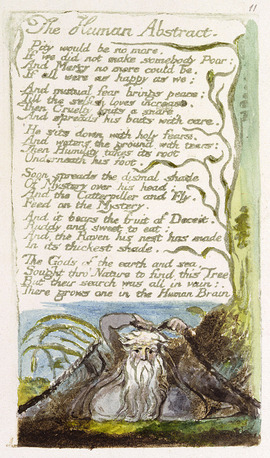 11
The Human Abstract.
Pity would be no more,
If we did not make somebody Poor:
And Mercy no more could be,
If all were as happy as we:
And mutual fear brings peace:
Till the selfish loves increase.
Then Cruelty knits a snare,
And spreads his baits with care.
He sits down with holy fears,
And waters the ground with tears:
Then Humility takes its root
Underneath his foot.
Soon spreads the dismal shade
Of Mystery over his head:
And the Catterpiller and Fly,
Feed on the Mystery.
And it bears the fruit of Deceit.
Ruddy and sweet to eat:
And the Raven his nest has made
In its thickest shade.
The Gods of the earth and sea,
Sought thro' Nature to find this Tree
But their search was all in vain:
There grows one in the Human Brain